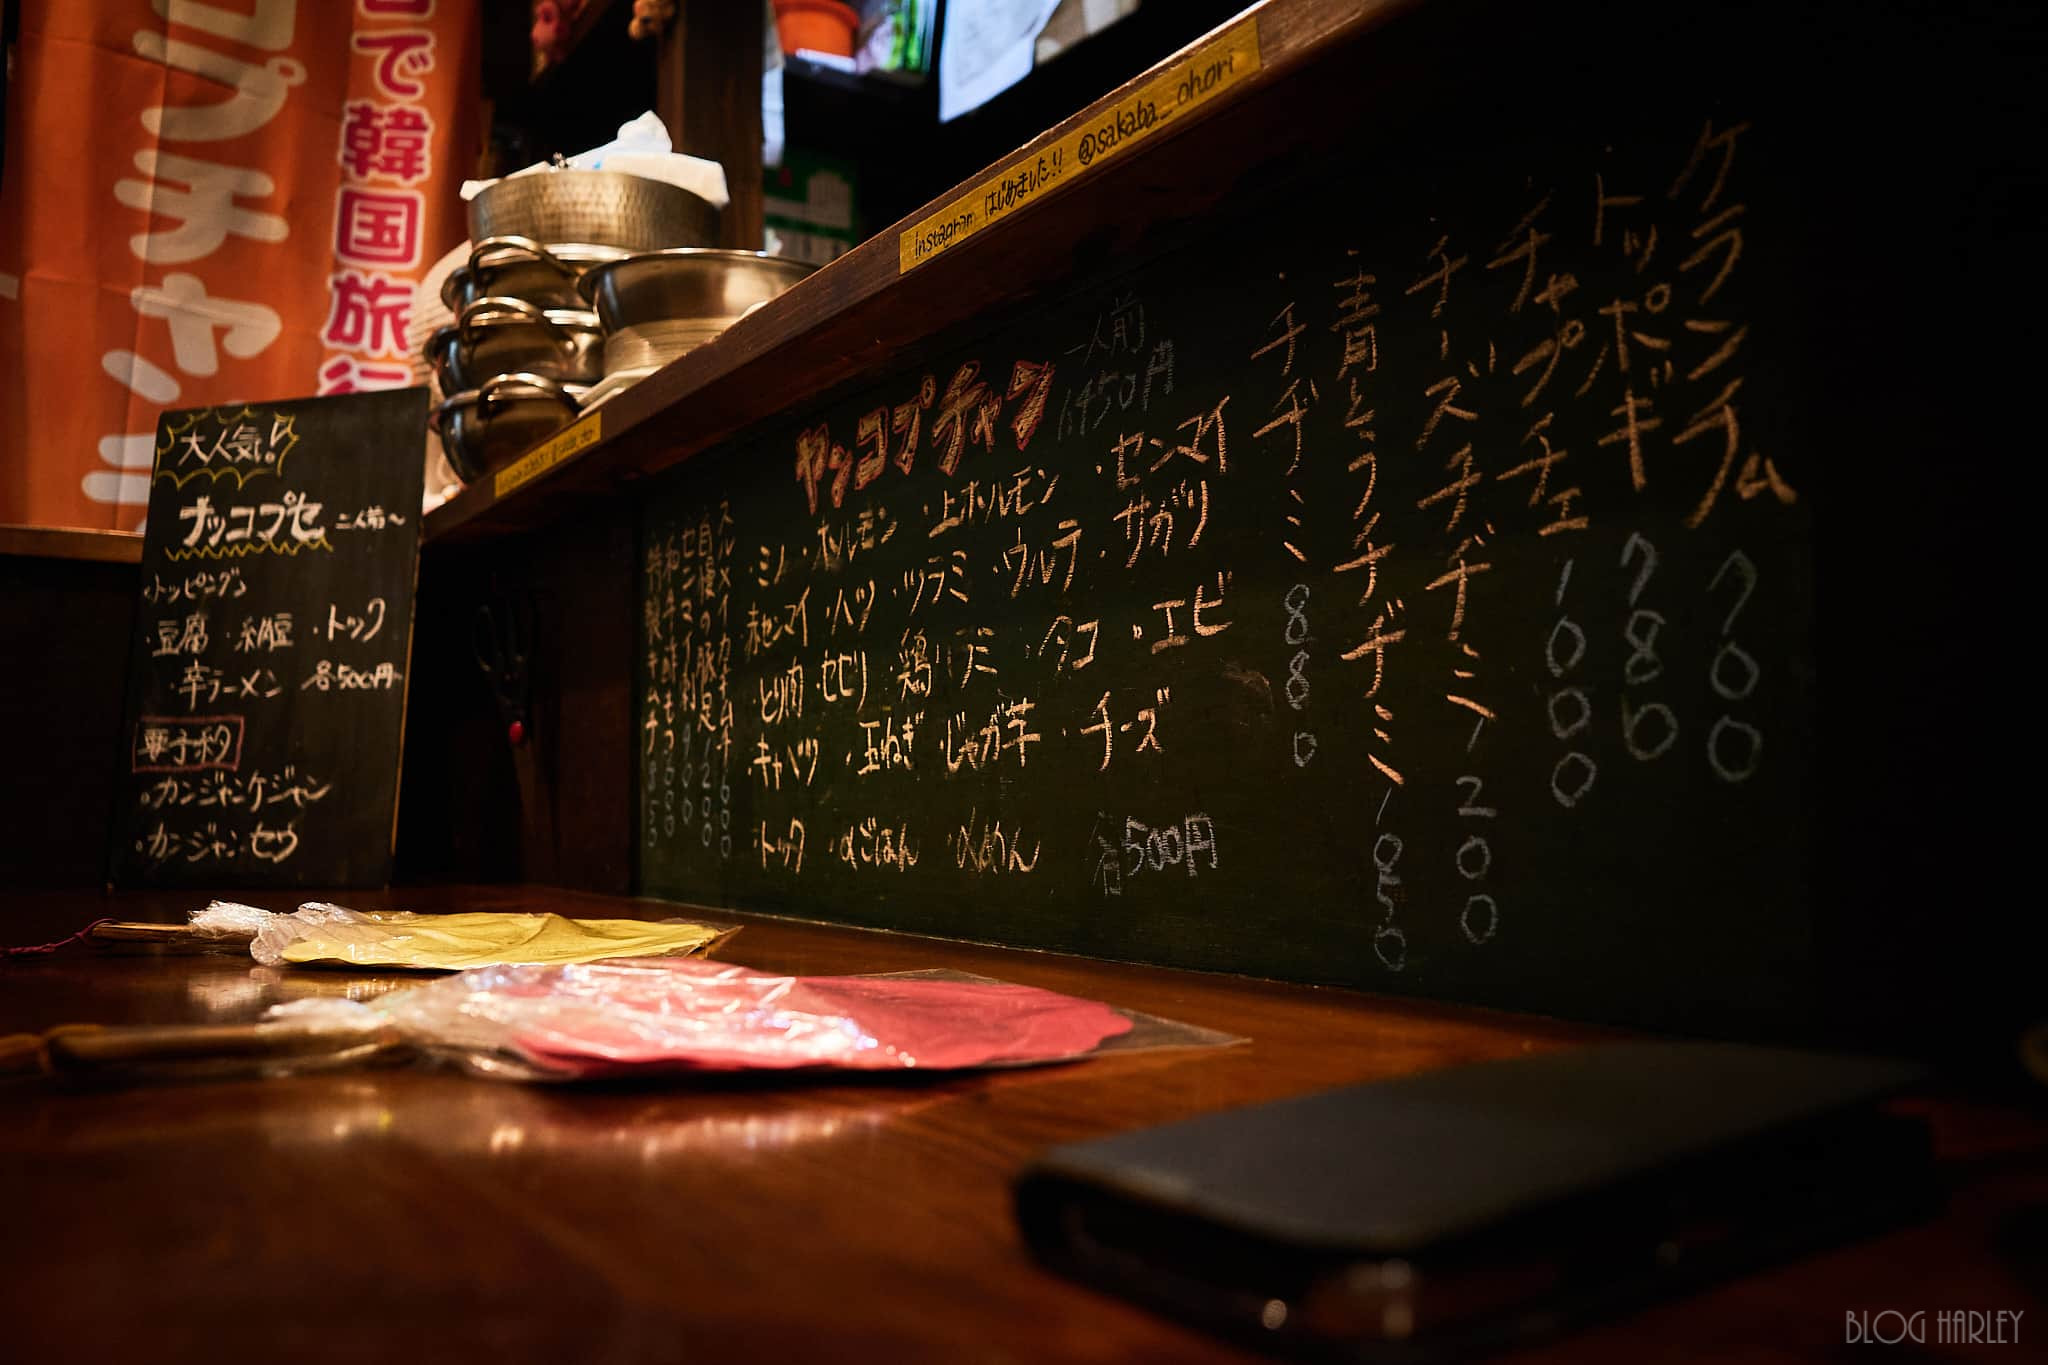 コプチャン
で韓国旅行
Instagram はじめました!! @sakaba_ohori
大人気!
ナッコプセ 二人前〜
トッピング
・豆腐 ・納豆 ・トック
・辛ラーメン 各500円
・カンジャンケジャン
・カンジャンセウ
ヤンコプチャン 一人前 1,450円
・ミノ ・ホルモン ・上ホルモン ・センマイ
・赤センマイ ・ハツ ・ツラミ ・ウルテ ・サガリ
・とり肉 ・セセリ ・鶏ハラミ ・タコ ・エビ
・キャベツ ・玉ねぎ ・じゃが芋 ・チーズ
・トック ・〆ごはん ・〆めん 各500円
・ケランチム 700
・トッポギ 780
・チャプチェ 1000
・チーズチヂミ 1200
・青とうチヂミ 1050
・チヂミ 880
スルメイカキムチ 600
自慢の豚足 1200
センマイ刺 900
特製キムチ 850
BLOG HARLEY